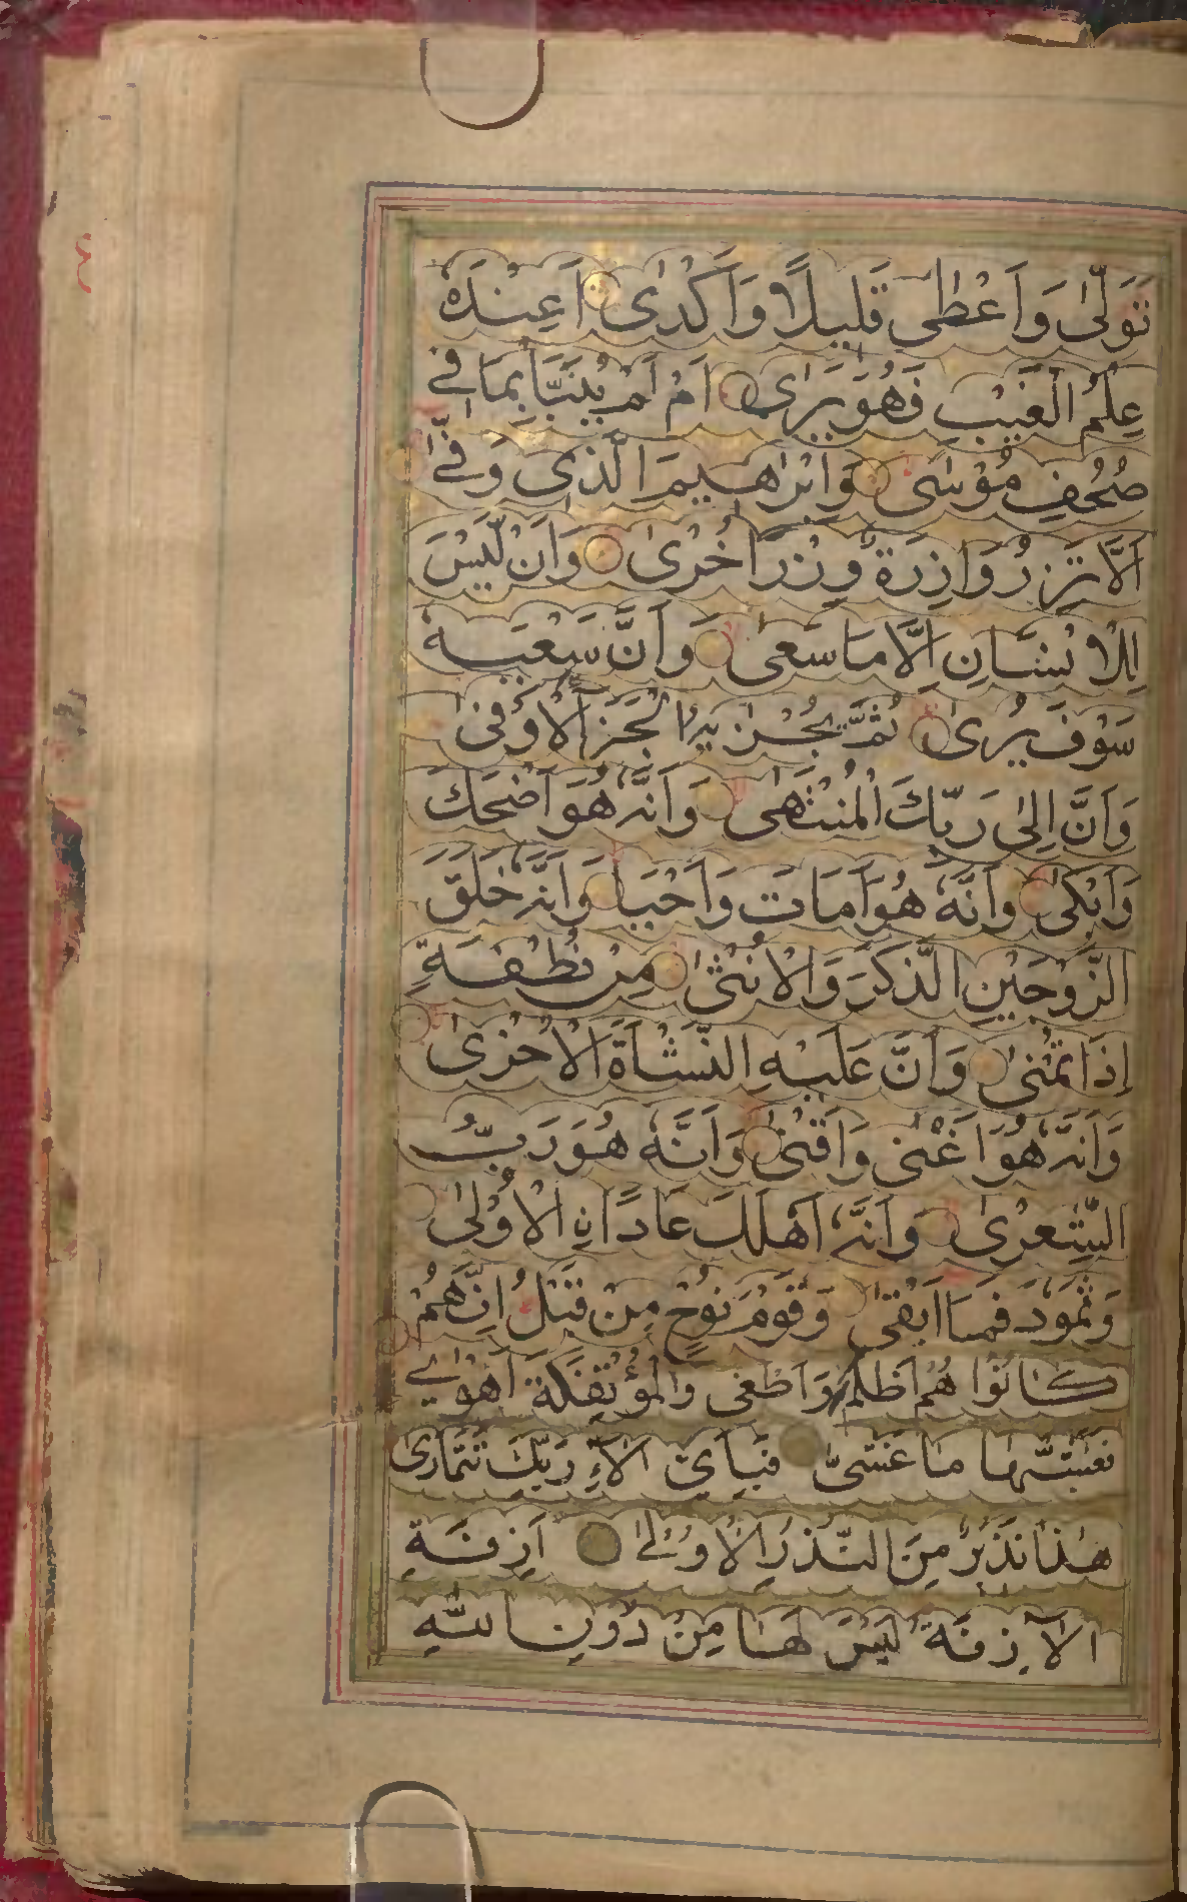 تَوَلّىٰ وَاَعْطٰى قَلِيلًا وَاَكْدٰى اَعِنْدَهُ
عِلْمُ الْغَيْبِ فَهُوَ يَرَىٰ اَمْ لَمْ يُنَبَّأْ بِمَا فِي
صُحُفِ مُوْسٰى وَاِبْرٰهِيمَ الَّذِى وَفّٰى
اَلَّا تَزِرُ وَازِرَةٌ وِزْرَ اُخْرىٰ وَاَنْ لَيْسَ
لِلْاِنْسَانِ اِلَّا مَا سَعىٰ وَاَنَّ سَعْيَهُ
سَوْفَ يُرىٰ ثُمَّ يُجْزٰيهُ الْجَزَآءَ الْاَوْفىٰ
وَاَنَّ اِلىٰ رَبِّكَ الْمُنْتَهٰى وَاَنَّهُ هُوَ اَضْحَكَ
وَاَبْكىٰ وَاَنَّهُ هُوَ اَمَاتَ وَاَحْيَا وَاَنَّهُ خَلَقَ
الزَّوْجَيْنِ الذَّكَرَ وَالْاُنْثىٰ مِنْ نُطْفَةٍ
اِذَا تُمْنىٰ وَاَنَّ عَلَيْهِ النَّشْاَةَ الْاُخْرىٰ
وَاَنَّهُ هُوَ اَغْنٰى وَاَقْنىٰ وَاَنَّهُ هُوَ رَبُّ
الشِّعْرىٰ وَاَنَّهُ اَهْلَكَ عَادًا نِ الْاُوْلىٰ
وَثَمُودَ فَمَا اَبْقىٰ وَقَوْمَ نُوْحٍ مِنْ قَبْلُ اِنَّهُمْ
كَانُوْا هُمْ اَظْلَمَ وَاَطْغٰى وَالْمُؤْتَفِكَةَ اَهْوٰى
فَغَشّٰيهَا مَا غَشّىٰ فَبِاَىِّ اٰلَآءِ رَبِّكَ تَتَمَارىٰ
هٰذَا نَذِيْرٌ مِنَ النُّذُرِ الْاُوْلىٰ اَزِفَةِ
الْاٰزِفَةُ لَيْسَ لَهَا مِنْ دُوْنِ اللّٰهِ
٤